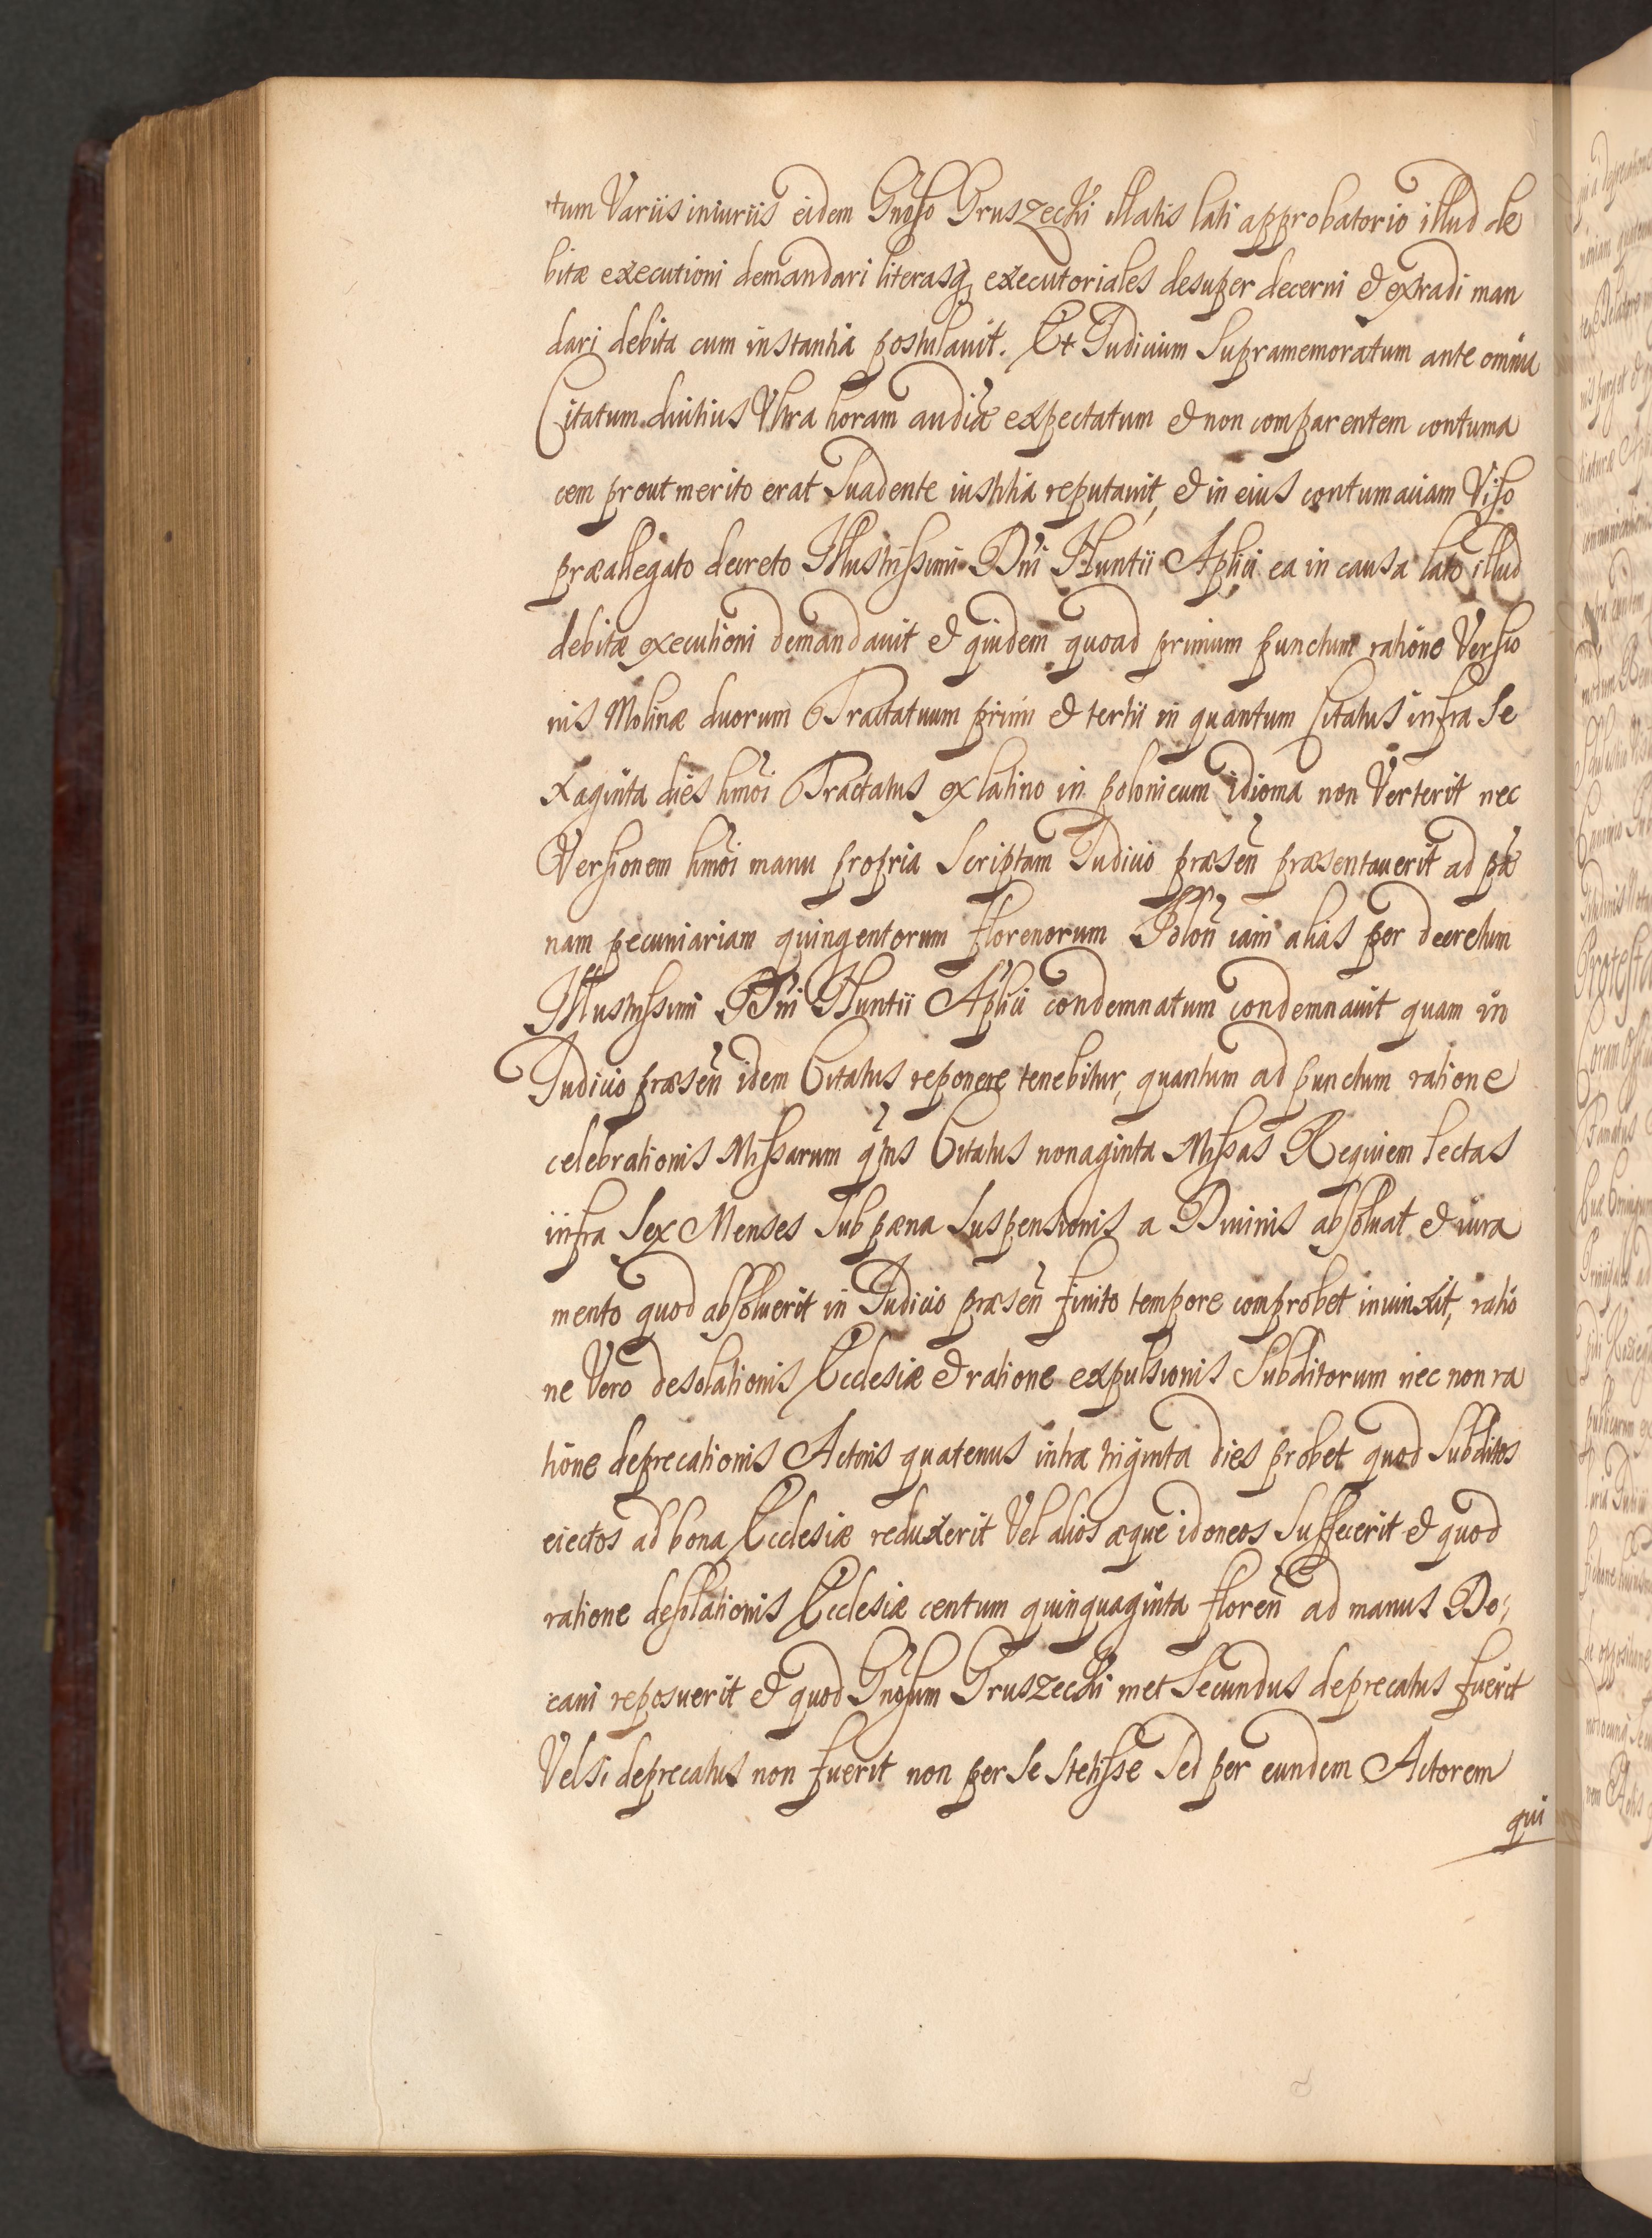 tum Variis iniuriis eidem Gnoso Gruszecki illatis lati approbatorio illud de
bitæ executioni demandari literasq executoriales desuper decerni et extradi man
dari debita cum instantia postulauit. Et Iudicium Supramemoratum ante omnia
Citatum diutius Vltra horam audiæ expectatum et non comparentem contuma
cem prout merito erat Suadente iustitia reputauit, et in eius contumaciam Viso
præallegato decreto Illustrissimi Dni Nuntii Aplici ea in causa lato illud
debitæ executioni demandauit et quidem quoad primum punctum ratione Versio
nis Molinæ duorum Tractatuum primi et tertii in quantum Citatus infra Se
xaginta dies hmoi Tractatus ex latino in polonicum idioma non Verterit nec
Versionem hmoi manu propria Scriptam Iudicio præsen præsentauerit ad pæ
nam pecuniariam quingentorum florenorum Polon iam alias per decretum
Illustrissimi Dni Nuntii Aplici condemnatum condemnauit quam in
Iudicio præsen idem Citatus reponere tenebitur, quantum ad punctum ratione
celebrationis Missarum Citatus nonaginta Missas Requiem lectas
infra Sex Menses Sub pæna Suspensionis a Diuinis absoluat et iura
mento quod absoluerit in Iudicio præsen finito tempore comprobet iniunxit, ratio
ne Vero desolationis Ecclesiæ et ratione expulsionis Subditorum nec non ra
tione deprecationis Actoris quatenus intra triginta dies probet quod Subditos
eiectos ad bona Ecclesiæ reduxerit Vel alios æque idoneos Suffecerit et quod
ratione desolationis Ecclesiæ centum quinquaginta floren ad manus De,
cani reposuerit et quod Gnosum Gruszecki met Secundus deprecatus fuerit
Vel si deprecatus non fuerit non per Se Stetisse Sed per eundem Actorem
qui